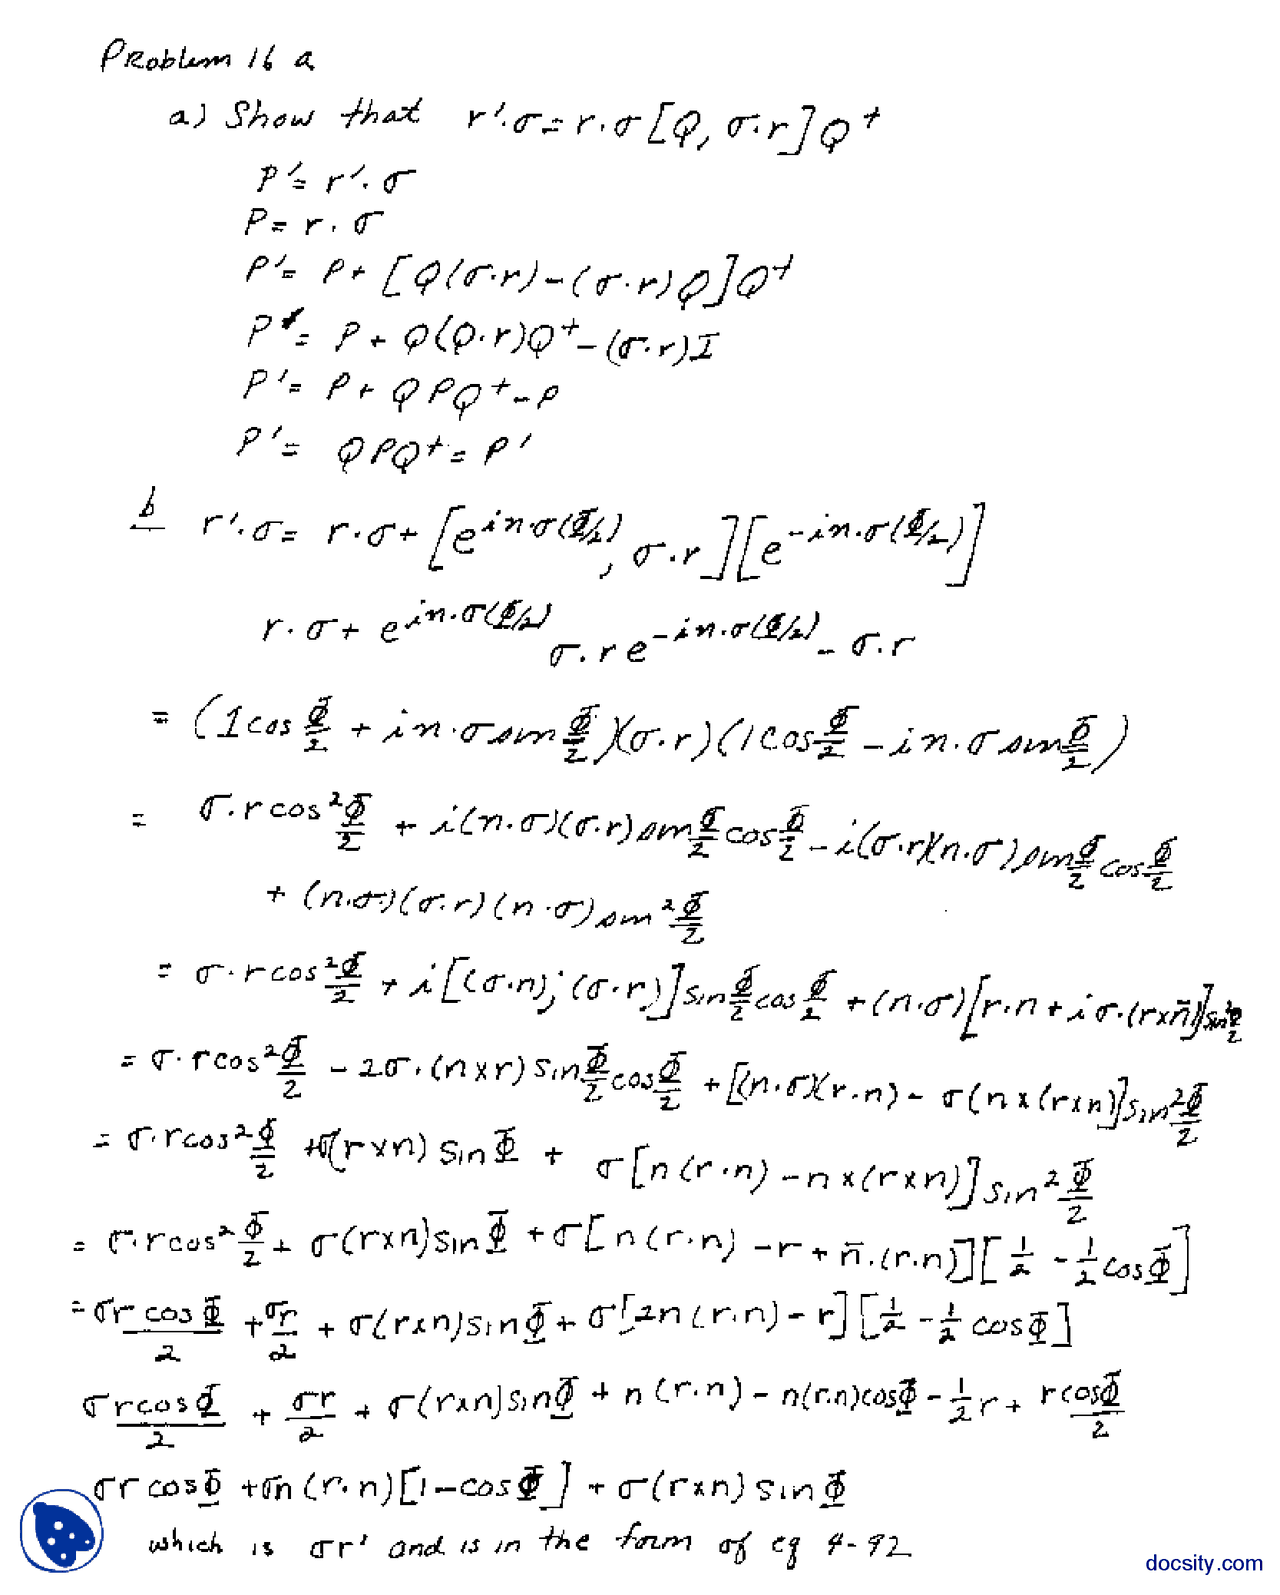 Problem 16 a
a) Show that r'·σ = r·σ [Q, σ·r] Q⁺
P' = r'·σ
P = r·σ
P' = P + [Q(σ·r) - (σ·r)Q]Q⁺
P' = P + Q(Q·r)Q⁺ - (σ·r)I
P' = P + QPQ⁺ - P
P' = QPQ⁺ = P'
b r'·σ = r·σ + [e^{in·σ(Φ/2)}, σ·r][e^{-in·σ(Φ/2)}]
r·σ + e^{in·σ(Φ/2)} σ·r e^{-in·σ(Φ/2)} - σ·r
= (1cos Φ/2 + in·σ sin Φ/2)(σ·r)(1cos Φ/2 - in·σ sin Φ/2)
= σ·r cos² Φ/2 + i(n·σ)(σ·r) sin Φ/2 cos Φ/2 - i(σ·r)(n·σ) sin Φ/2 cos Φ/2
+ (n·σ)(σ·r)(n·σ) sin² Φ/2
= σ·r cos² Φ/2 + i[(σ·n); (σ·r)] sin Φ/2 cos Φ/2 + (n·σ)[r·n + iσ·(r×n̄)] sin² Φ/2
= σ·r cos² Φ/2 - 2σ·(n×r) sin Φ/2 cos Φ/2 + [(n·σ)(r·n) - σ(n×(r×n)] sin² Φ/2
= σ·r cos² Φ/2 + σ(r×n) sin Φ + σ[n(r·n) - n×(r×n)] sin² Φ/2
= σ·r cos² Φ/2 + σ(r×n) sin Φ + σ[n(r·n) - r + n̄·(r·n)][1/2 - 1/2 cos Φ]
= σr cos Φ/2 + σr/2 + σ(r×n) sin Φ + σ[2n(r·n) - r][1/2 - 1/2 cos Φ]
σr cos Φ/2 + σr/2 + σ(r×n) sin Φ + n(r·n) - n(r·n) cos Φ - 1/2 r + r cos Φ/2
σr cos Φ + σn(r·n)[1 - cos Φ] + σ(r×n) sin Φ
which is σr' and is in the form of eq 4-92
docsity.com